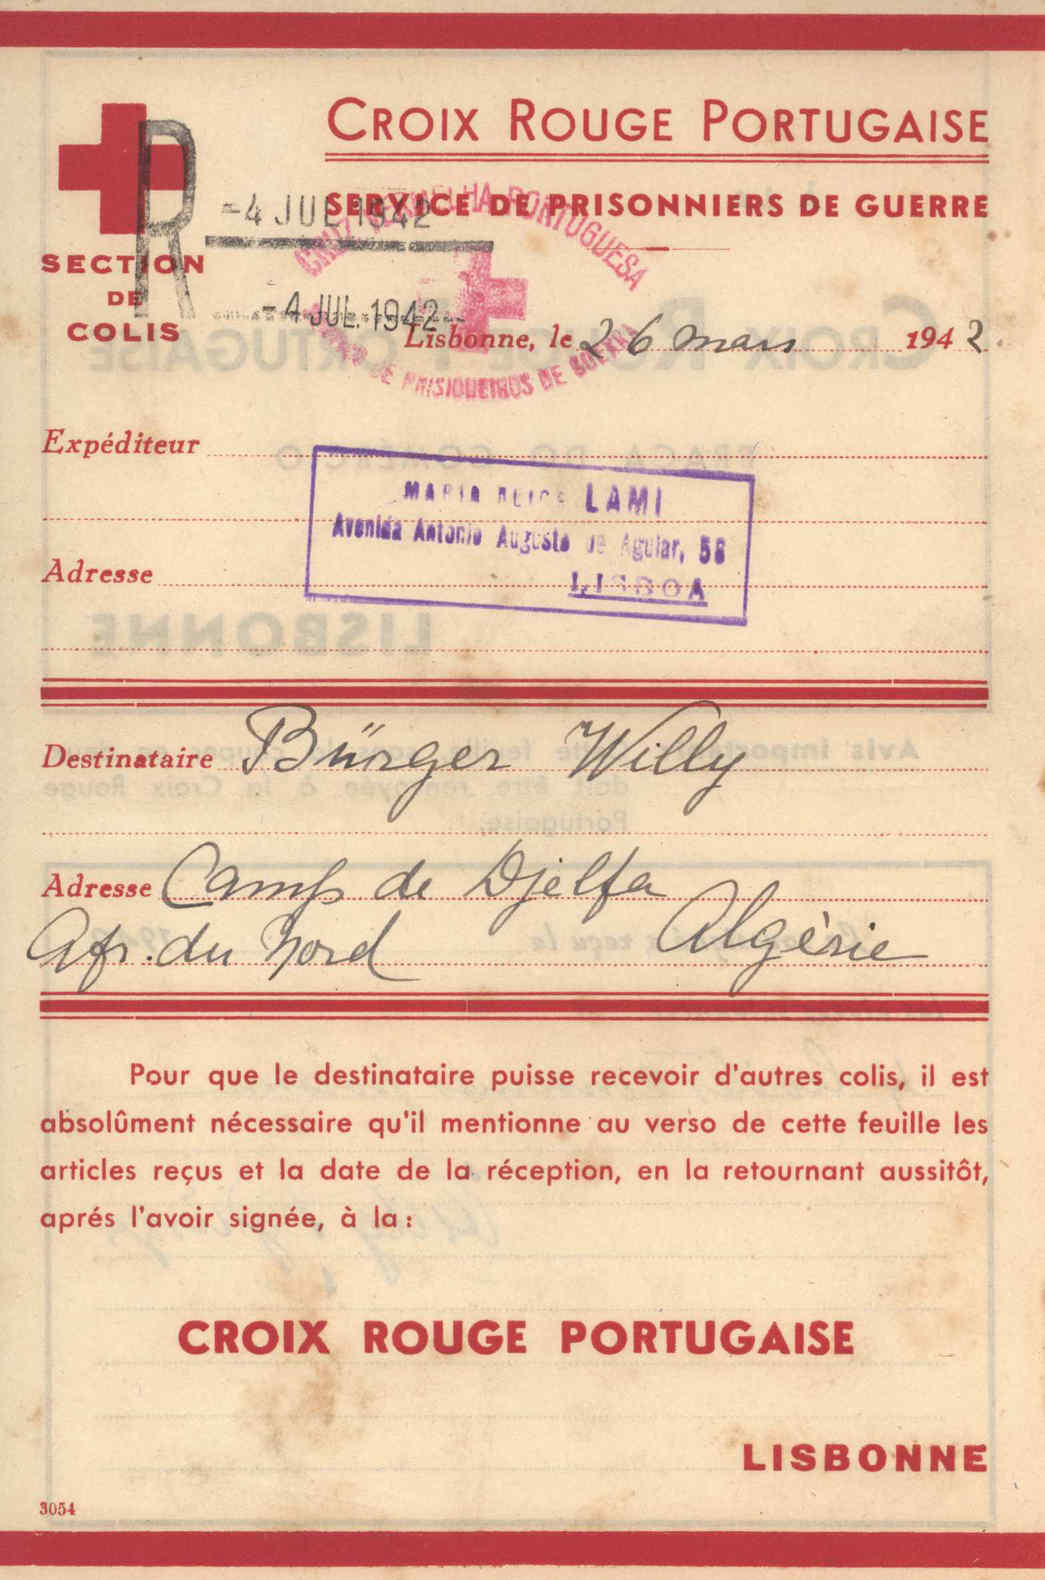 CROIX ROUGE PORTUGAISE
SERVICE DE PRISONNIERS DE GUERRE
R
-4 JUL 1942
SECTION
DE
COLIS
CRUZ VERMELHA PORTUGUESA
DE PRISIONEIROS DE GUERRA
-4 JUL. 1942
Lisbonne, le 26 mars 1942.
Expéditeur
MARIA ALICE LAMI
Avenida Antonio Augusto de Aguiar, 58
LISBOA
Adresse
Destinataire Bürger Willy
Adresse Camp de Djelfa
Afr. du Nord Algèrie
Pour que le destinataire puisse recevoir d'autres colis, il est
absolûment nécessaire qu'il mentionne au verso de cette feuille les
articles reçus et la date de la réception, en la retournant aussitôt,
aprés l'avoir signée, à la:
CROIX ROUGE PORTUGAISE
LISBONNE
3054